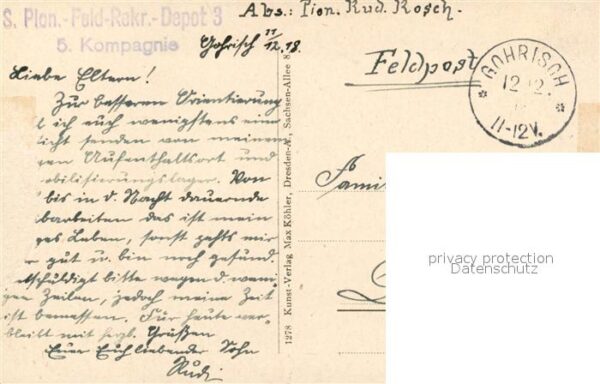 S. Pion.-Feld-Rekr.-Depot 3
5. Kompagnie
Abs.: Pion. Rud. Kosch.
Gohrisch 11/12.18.
Feldpost
GOHRISCH
12 12.
11-12V.
Liebe Eltern!
Zur besseren Orientierung
ich euch wenigstens eine
icht senden von meinem
gen Aufenthaltsort und
obilisierungslager. Von
bis in d. Nacht dauernde
barbeiten das ist mein
ges Leben, sonst gehts mir
gut u. bin noch gesund.
tschuldigt bitte wegen d. weni-
gen Zeilen, jedoch meine Zeit
ist bemessen. Für heute ver-
bleibt mit hrzl. Grüßen
Euer Euch liebender Sohn
Rudi
1278 Kunst-Verlag Max Köhler, Dresden-A., Sachsen-Allee 8
Famil
privacy protection
Datenschutz